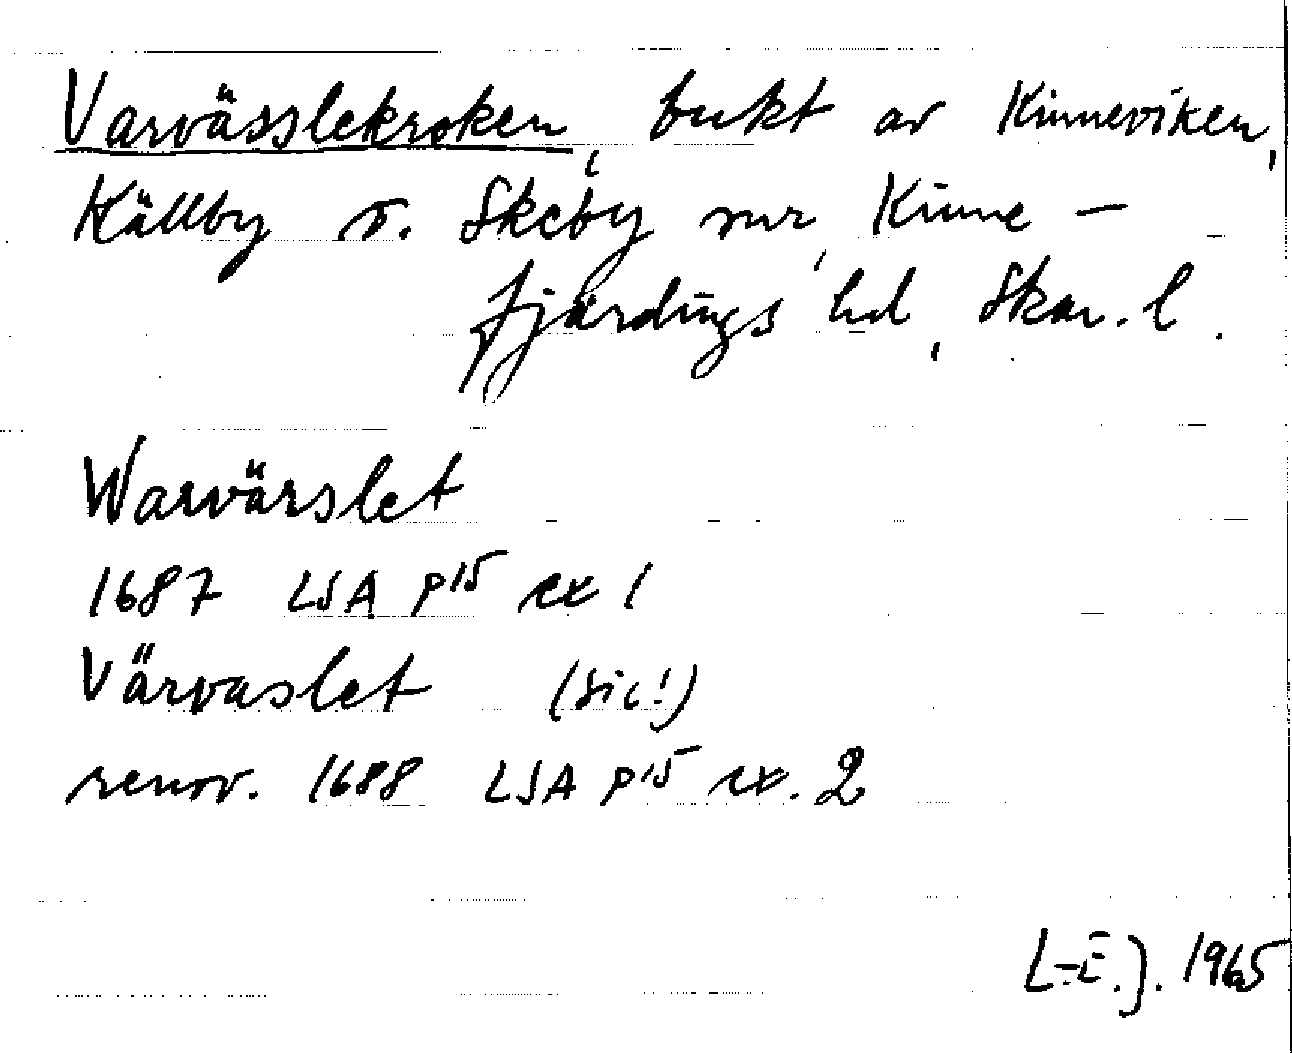 Varvässlekroken, bukt av Kinneviken,
Källby o. Skeby snr, Kinne-
fjärdings hd, Skar. l.
Warvärslet
1687 LSA P15 ex 1
Värvaslet (sic!)
renov. 1688 LSA P15 ex. 2
L-E.J. 1965